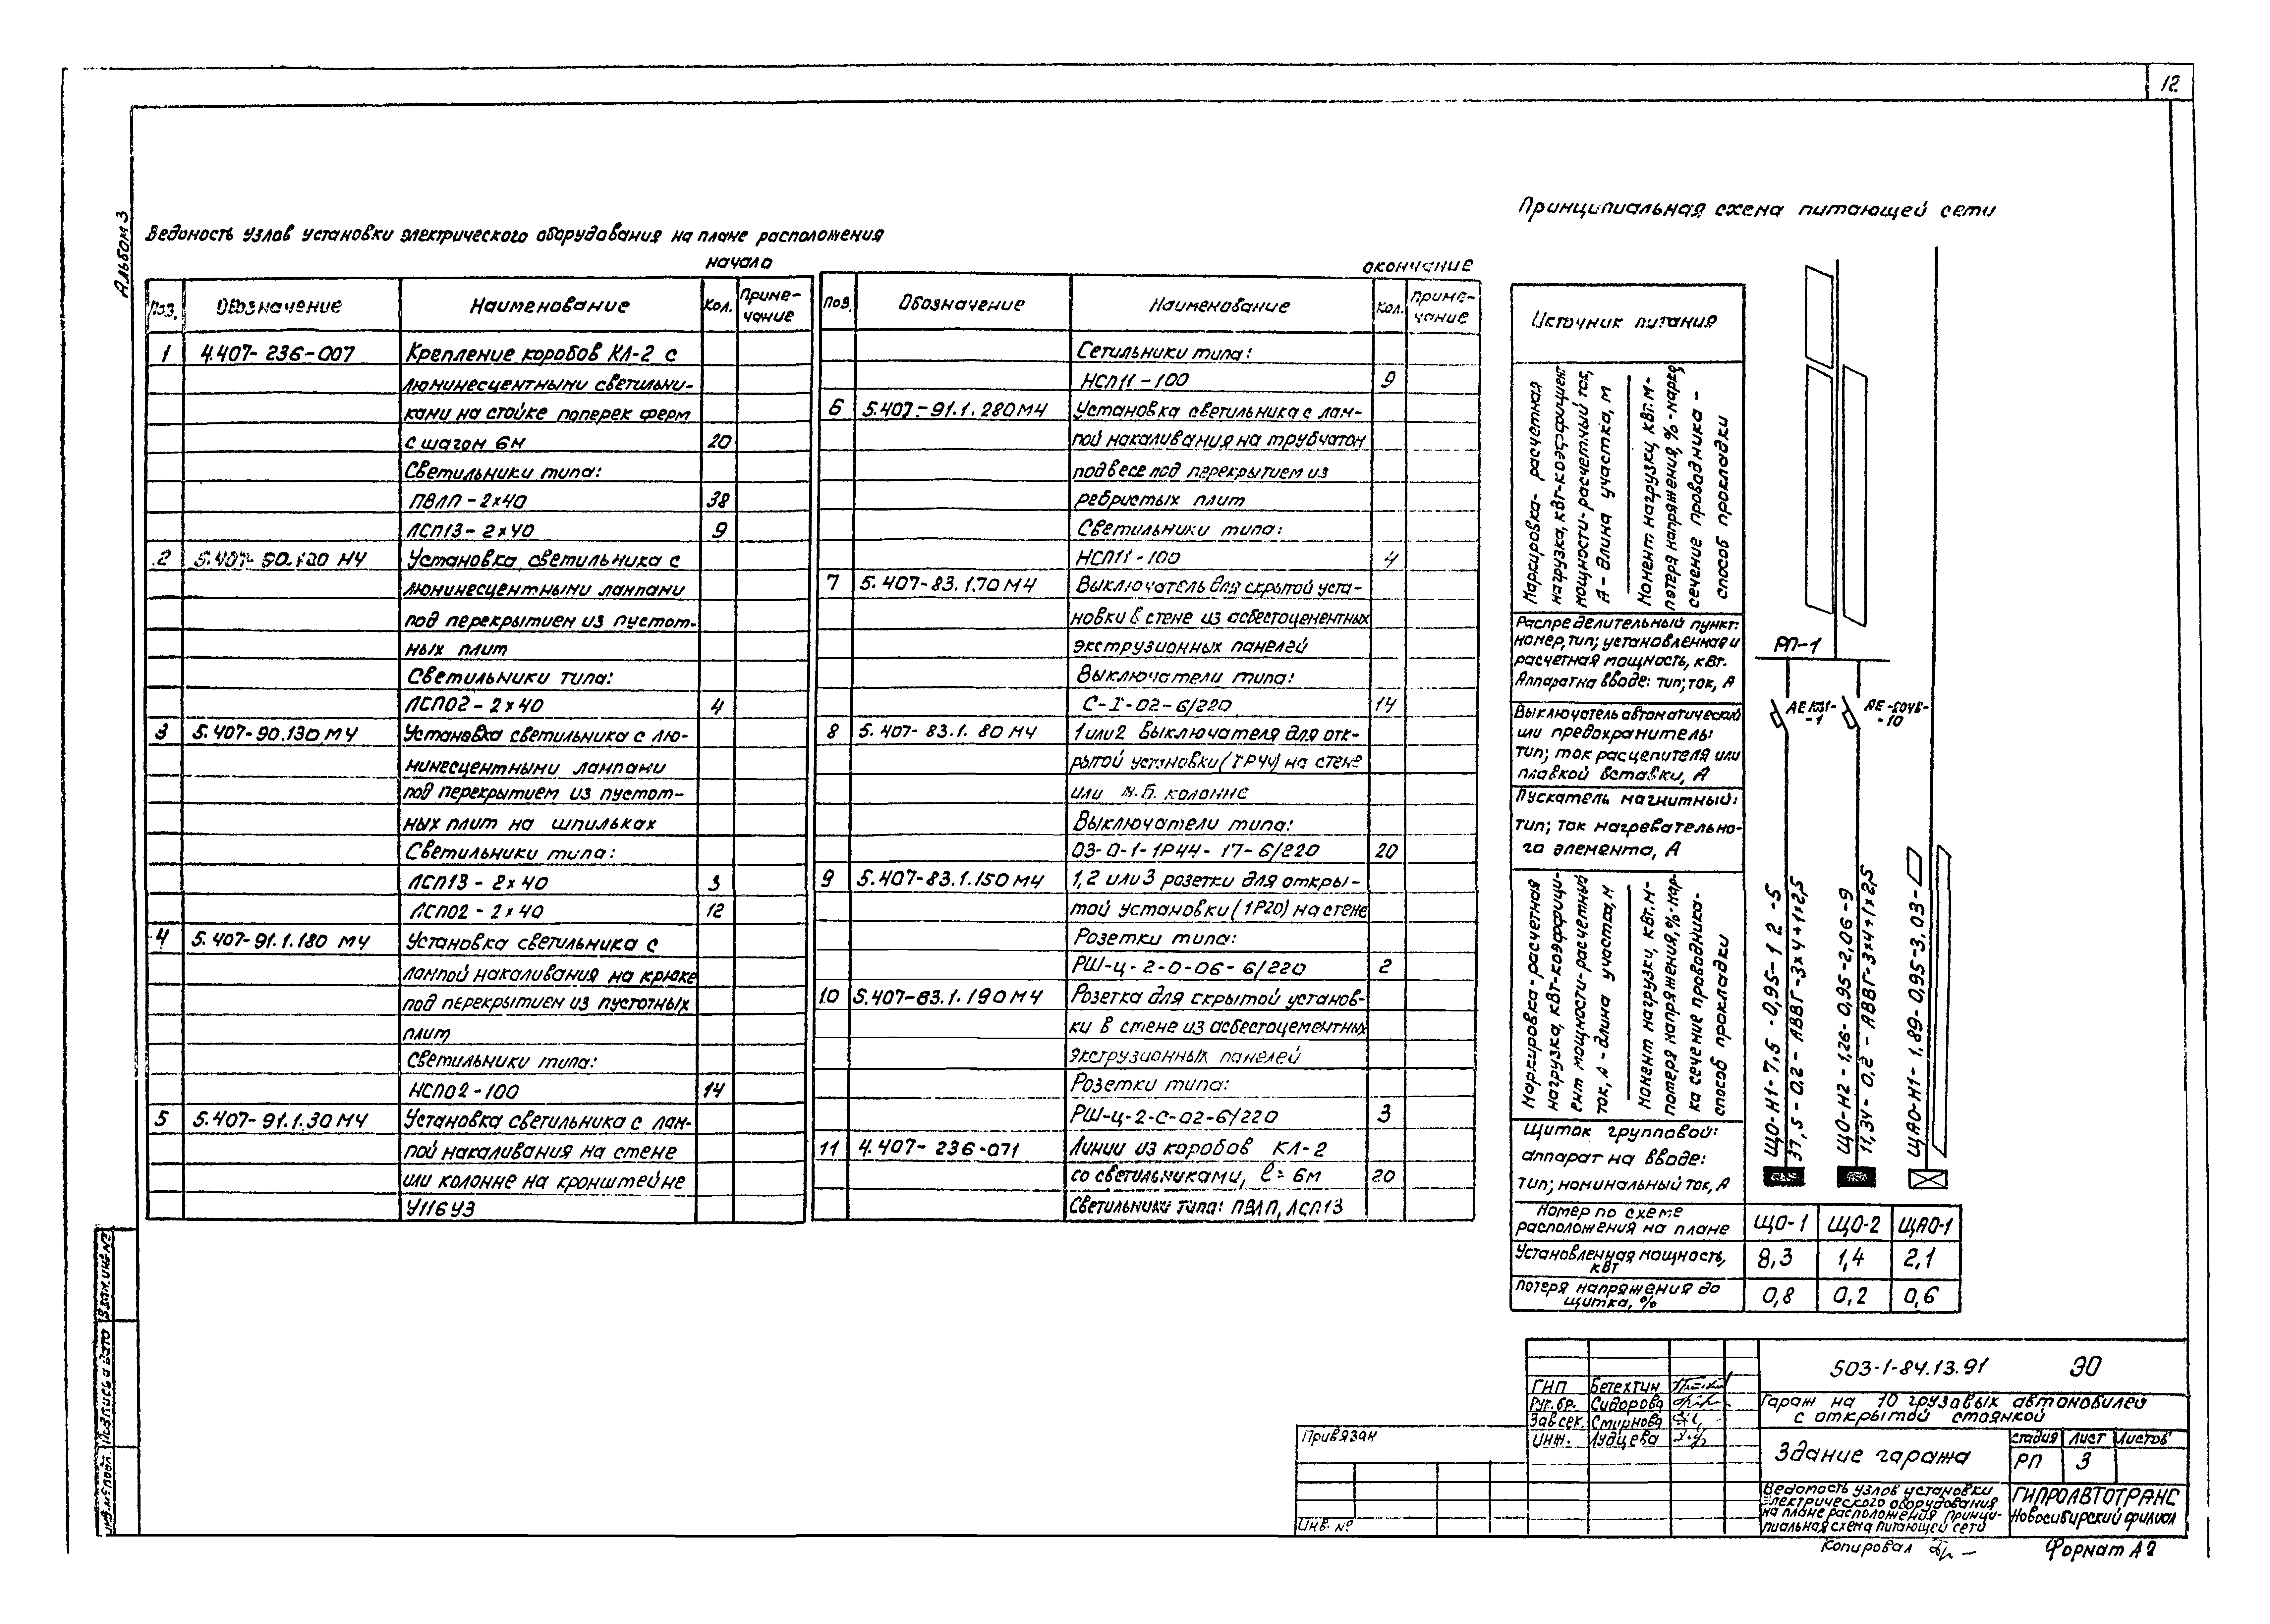 12
Альбом 3
Ведомость узлов установки электрического оборудования на плане расположения
начало
Поз. Обозначение Наименование Кол. Приме-
чание
1 4.407-236-007 Крепление коробов КЛ-2 с
люминесцентными светильни-
ками на стойке поперек ферм
с шагом 6м 20
Светильники типа:
ПВЛП-2×40 38
ЛСП13-2×40 9
2 Установка светильника с
люминесцентными лампами
под перекрытием из пустот-
ных плит
Светильники типа:
ЛСП02-2×40 4
3 5.407-90.130 МЧ Установка светильника с лю-
минесцентными лампами
под перекрытием из пустот-
ных плит на шпильках
Светильники типа:
ЛСП13-2×40 3
ЛСП02-2×40 12
4 5.407-91.1.180 МЧ Установка светильника с
лампой накаливания на крюке
под перекрытием из пустотных
плит
Светильники типа:
НСП02-100 14
5 5.407-91.1.30 МЧ Установка светильника с лам-
пой накаливания на стене
или колонне на кронштейне
У116У3
окончание
Поз. Обозначение Наименование Кол. Приме-
чание
Сетильники типа:
НСП11-100 9
6 5.407-91.1.280МЧ Установка светильника с лам-
пой накаливания на трубчатом
подвесе под перекрытием из
ребристых плит
Светильники типа:
НСП11-100 4
7 5.407-83.1.70 МЧ Выключатель для скрытой уста-
новки в стене из асбестоцементных
экструзионных панелей
Выключатели типа:
С-I-02-6/220 14
8 5.407-83.1.80 МЧ 1 или 2 выключателя для отк-
рытой установки (IP44) на стене
или ж.б. колонне
Выключатели типа:
03-0-1-1Р44-17-6/220 20
9 5.407-83.1.150 МЧ 1,2 или 3 розетки для откры-
той установки (1Р20) на стене
Розетки типа:
РШ-ц-2-0-06-6/220 2
10 5.407-83.1.190 МЧ Розетка для скрытой установ-
ки в стене из асбестоцементных
экструзионных панелей
Розетки типа:
РШ-ц-2-С-02-6/220 3
11 4.407-236-071 Линии из коробов КЛ-2
со светильниками, l=6м 20
Светильники типа: ПВЛП, ЛСП13
Принципиальная схема питающей сети
Источник питания
Маркировка-расчетная
нагрузка, квт-коэффициент
мощности-расчетный ток,
А-длина участка, м
Момент нагрузки, квт.м-
потеря напряжения, %-марка,
сечение проводника-
способ прокладки
Распределительный пункт:
номер, тип; установленная и
расчетная мощность, кВт.
Аппарат на вводе: тип; ток, А
РП-1
Выключатель автоматический
или предохранитель:
тип; ток расцепителя или
плавкой вставки, А
-1
-10
Пускатель магнитный:
тип; ток нагревательно-
го элемента, А
Маркировка-расчетная
нагрузка, кВт-коэффици-
ент мощности-расчетный
ток, А-длина участка, м
Момент нагрузки, квт.м-
потеря напряжения, %-мар-
ка сечение проводника-
способ прокладки
ЩО-Н1-7,5-0,95-12-5
37,5-0.2-АВВГ-3×4+1×2,5
ЩО-Н2-1,26-0,95-2,06-9
11,34-0,2-АВВГ-3×4+1×2,5
ЩАО-Н1-1.89-0,95-3.03-
Щиток групповой:
аппарат на вводе:
тип; номинальный ток, А
Номер по схеме
расположения на плане ЩО-1 ЩО-2 ЩАО-1
Установленная мощность,
кВт 8,3 1,4 2,1
Потеря напряжения до
щитка, % 0,8 0,2 0,6
503-1-84.13.91 ЭО
ГИП Бетехтин
Рук.бр. Сидорова
Зав сек. Смирнова
Инж. Лудцева
Гараж на 10 грузовых автомобилей
с открытой стоянкой
Здание гаража
стадия Лист Листов
РП 3
Ведомость узлов установки
электрического оборудования
на плане расположения Принци-
пиальная схема питающей сети
ГИПРОАВТОТРАНС
Новосибирский филиал
Привязан
Инв. №
Копировал
Формат А2
Взам.инв.№
Подпись и дата
Инв.№ подл.